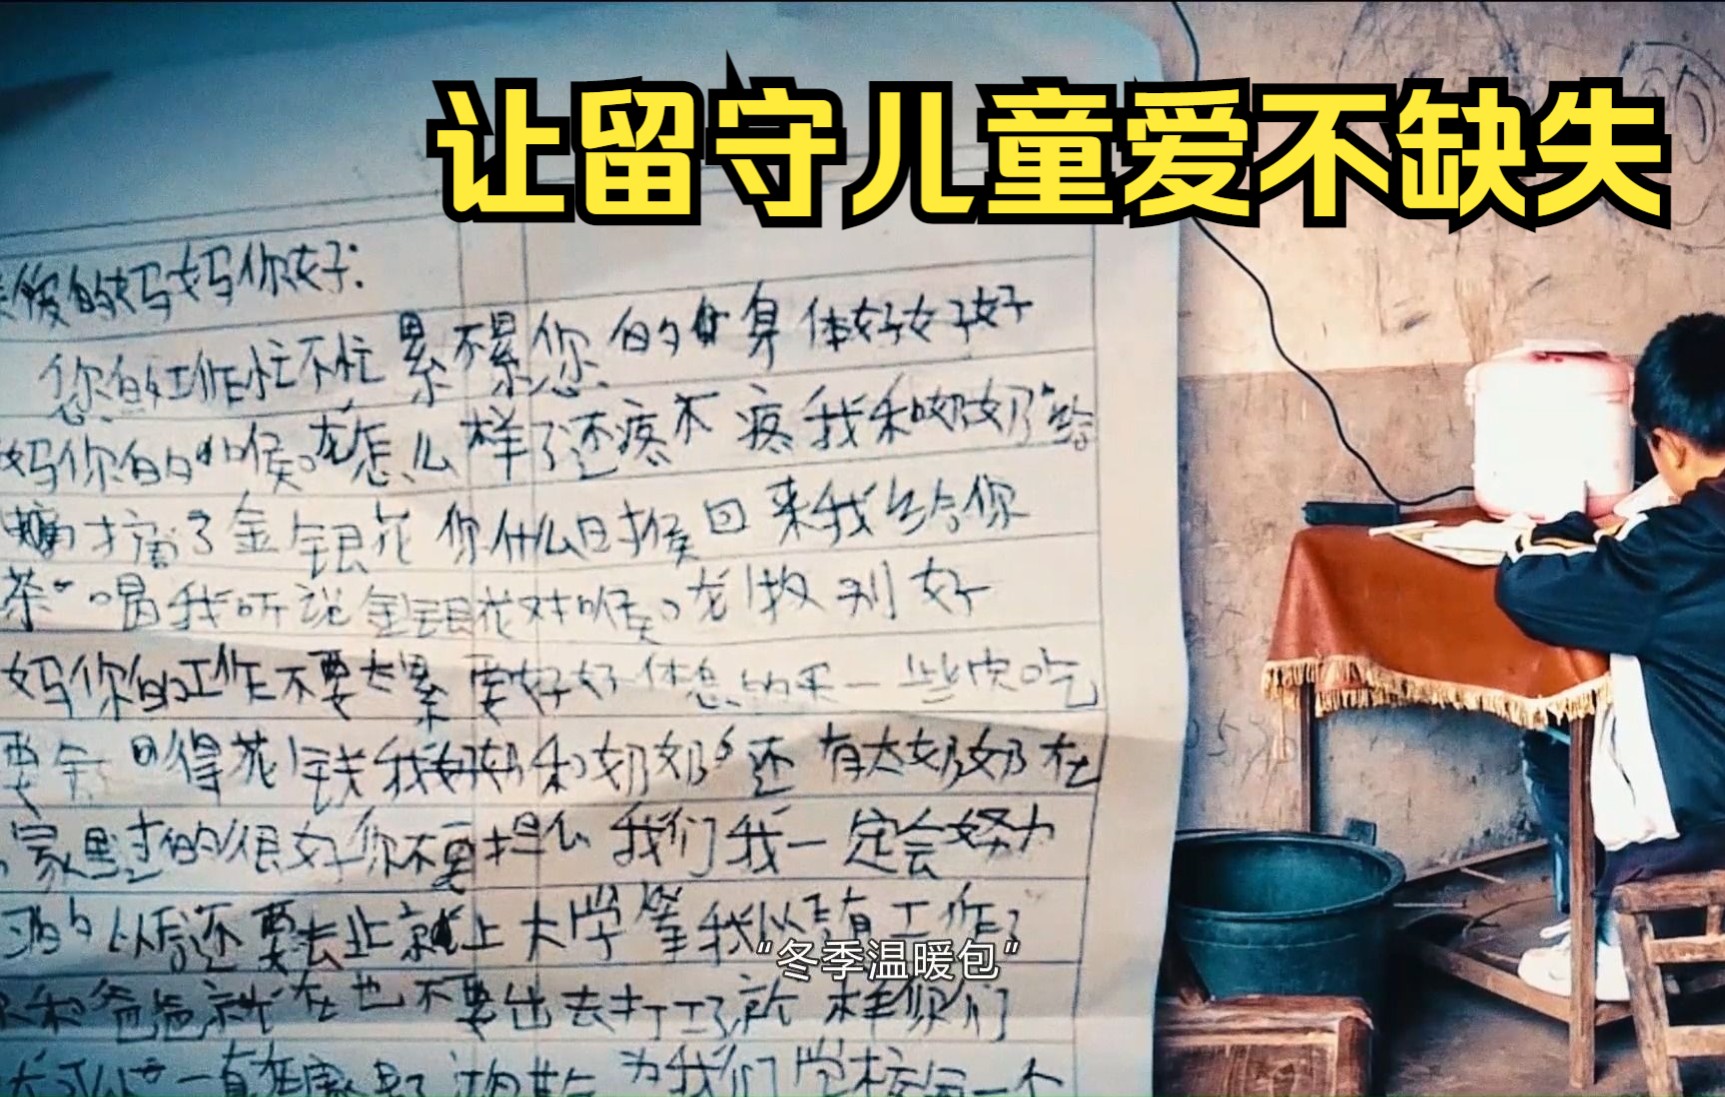 让留守儿童爱不缺失
的妈妈你好:
您的工作忙不忙累不累您的身体好好好
妈你的喉咙怎么样了还疼不疼我和奶奶给
摘了金银花你什么时候回来我给你
茶喝我听说金银花对喉咙特别好
妈你的工作不要太累要好好休息的买一些吃
要舍得花钱我和奶奶还有大奶奶在
家过的很好你不要担心我们我一定会努力
的以后还要去上就上大学等我以后有工作了
“冬季温暖包”
和爸爸就在也不要出去打工了你们
一直在家为我们学校每一个